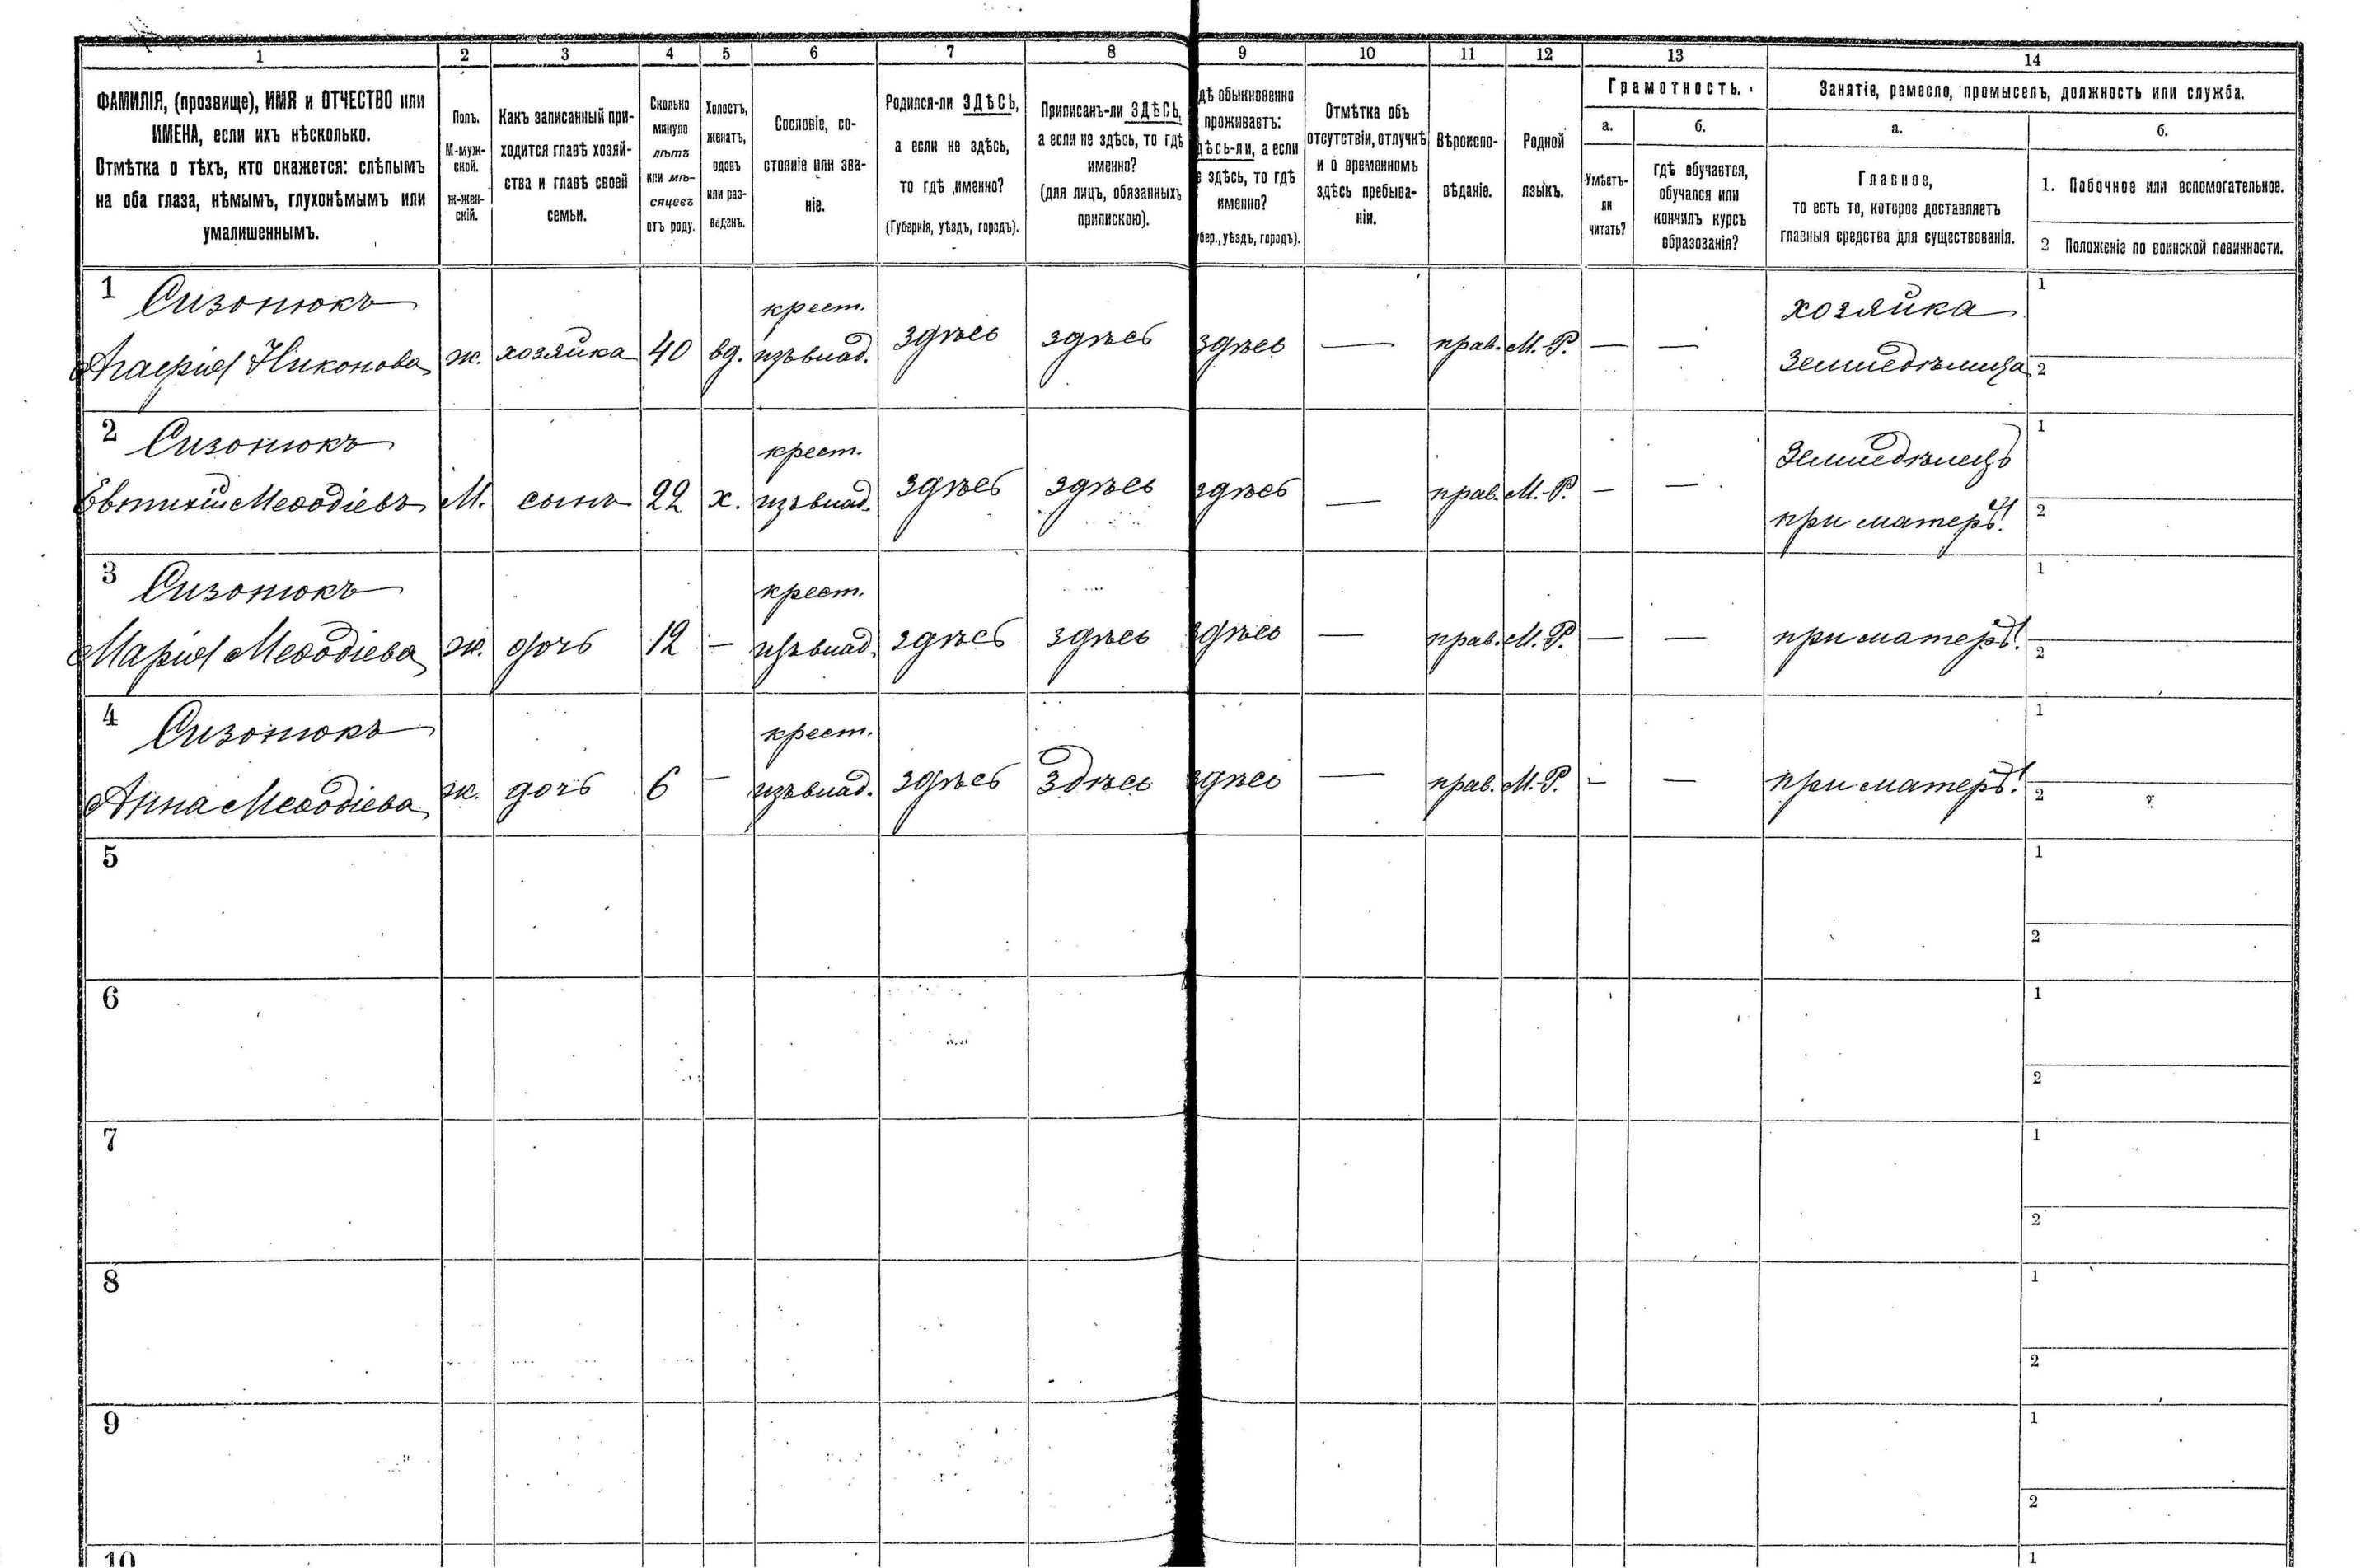 1 2 3 4 5 6 7 8 9 10 11 12 13 14
ФАМИЛІЯ, (прозвище), ИМЯ и ОТЧЕСТВО или
ИМЕНА, если ихъ нѣсколько.
Отмѣтка о тѣхъ, кто окажется: слѣпымъ
на оба глаза, нѣмымъ, глухонѣмымъ или
умалишеннымъ.
Полъ.
М-муж-
ской.
ж-жен-
скій.
Какъ записанный при-
ходится главѣ хозяй-
ства и главѣ своей
семьи.
Сколько
минуло
лѣтъ
или мѣ-
сяцевъ
отъ роду.
Холостъ,
женатъ,
вдовъ
или раз-
веденъ.
Сословіе, со-
стояніе или зва-
ніе.
Родился-ли ЗДѢСЬ,
а если не здѣсь,
то гдѣ именно?
(Губернія, уѣздъ, городъ).
Приписанъ-ли ЗДѢСЬ,
а если не здѣсь, то гдѣ
именно?
(для лицъ, обязанныхъ
припискою).
дѣ обыкновенно
проживаетъ:
дѣсь-ли, а если
е здѣсь, то гдѣ
именно?
бер., уѣздъ, городъ).
Отмѣтка объ
отсутствіи, отлучкѣ
и о временномъ
здѣсь пребыва-
ніи.
Вѣроиспо-
вѣданіе.
Родной
языкъ.
Грамотность.
а.
Умѣетъ-
ли
читать?
б.
гдѣ обучается,
обучался или
кончилъ курсъ
образованія?
Занятіе, ремесло, промыселъ, должность или служба.
а.
Главное,
то есть то, которое доставляетъ
главныя средства для существованія.
б.
1. Побочное или вспомогательное.
2 Положеніе по воинской повинности.
1 Сизонюкъ крест. хозяйка 1
Агафія Никонова ж. хозяйка 40 вд. изъ влад. здѣсь здѣсь здѣсь — прав. М.-Р. — — земледѣлица 2
2 Сизонюкъ крест. земледѣлецъ 1
Евтихій Меѳодіевъ М. сынъ 22 х. изъ влад. здѣсь здѣсь здѣсь — прав. М.-Р. — — при матери 2
3 Сизонюкъ крест. 1
Марія Меѳодіева ж. дочь 12 — изъ влад. здѣсь здѣсь здѣсь — прав. М.-Р. — — при матери 2
4 Сизонюкъ крест. 1
Анна Меѳодіева ж. дочь 6 — изъ влад. здѣсь здѣсь здѣсь — прав. М.-Р. — — при матери 2
5 1
2
6 1
2
7 1
2
8 1
2
9 1
2
10 1